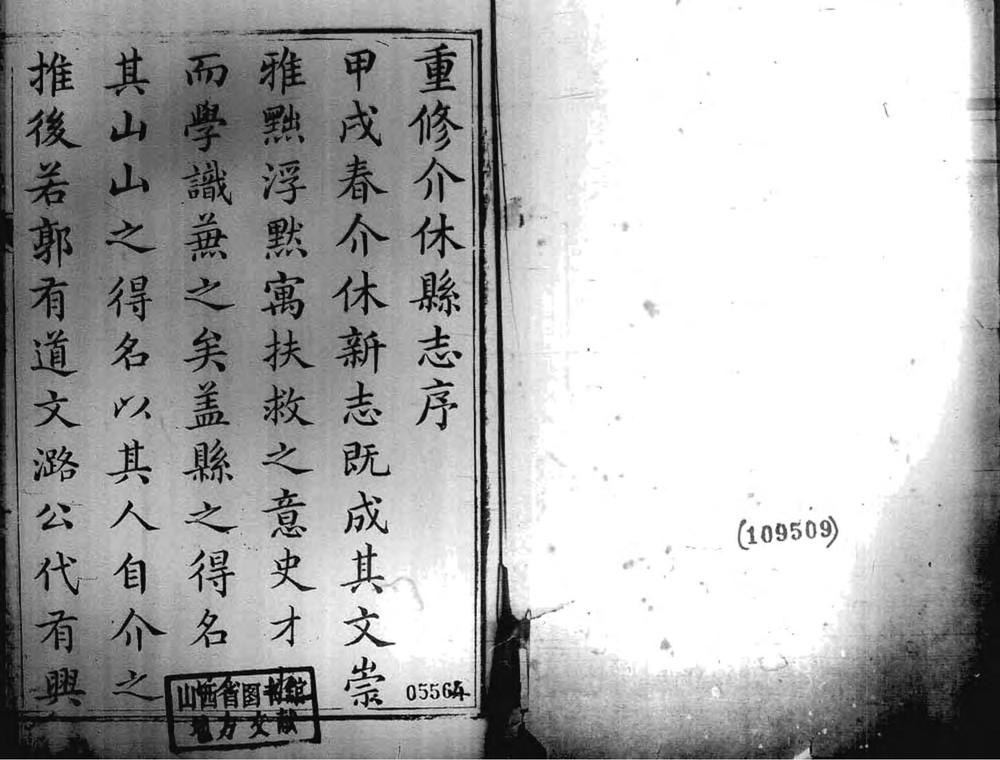 (109509)
重修介休縣志序
甲戌春介休新志既成其文崇
雅黜浮默寓扶救之意史才
而學識兼之矣盖縣之得名
其山山之得名以其人自介之
推後若郭有道文潞公代有興
05564
山西省图书馆
地方文献